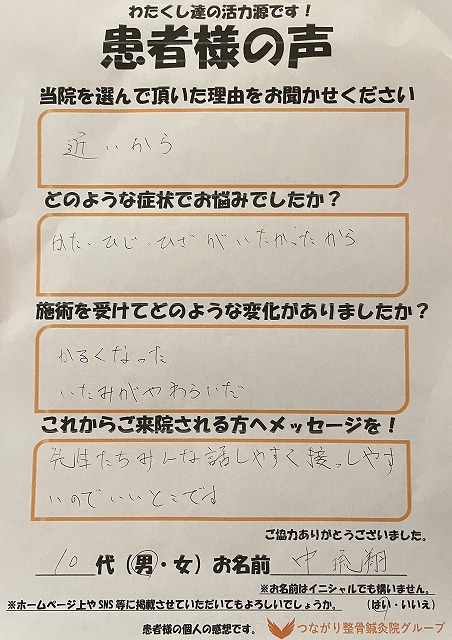 わたくし達の活力源です!
患者様の声
当院を選んで頂いた理由をお聞かせください
近いから
どのような症状でお悩みでしたか?
かた・ひじ・ひざがいたかったから
施術を受けてどのような変化がありましたか?
かるくなった
いたみがやわらいだ
これからご来院される方へメッセージを!
先生たちみんな話しやすく接っしやす
いのでいいとこです
ご協力ありがとうございました。
10代(男・女)お名前 中 琉翔
※お名前はイニシャルでも構いません。
※ホームページ上やSNS等に掲載させていただいてもよろしいでしょうか。 (はい・いいえ)
患者様の個人の感想です。
つながり整骨鍼灸院グループ